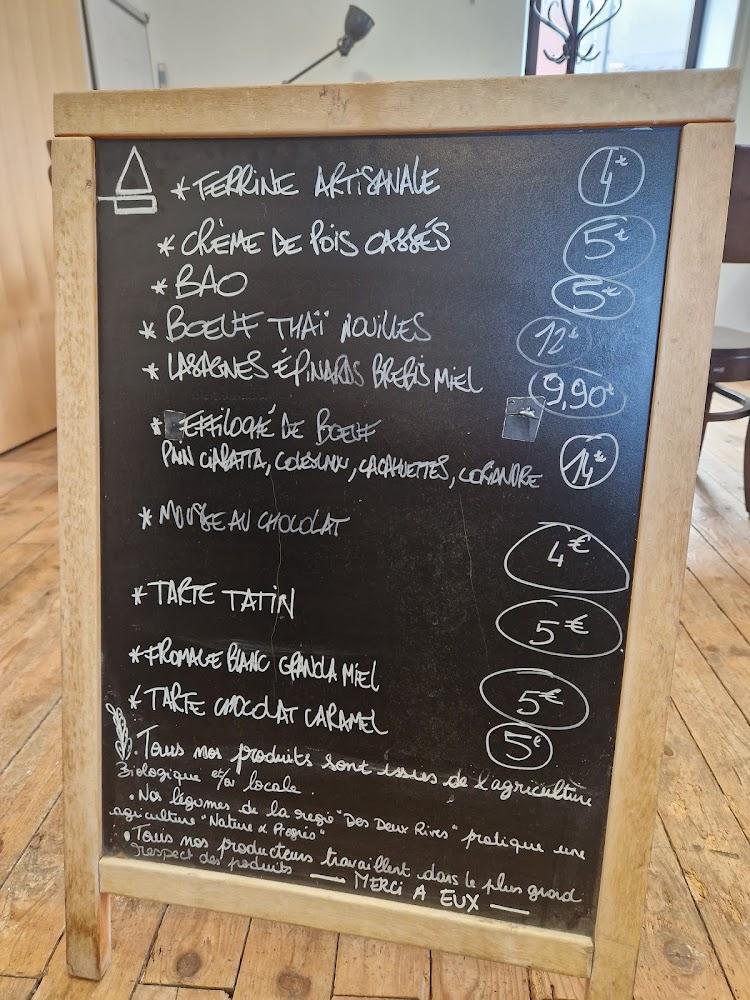 * TERRINE ARTISANALE 4€
* CRÈME DE POIS CASSÉS 5€
* BAO 5€
* BOEUF THAÏ NOUILLES 12€
* LASAGNES ÉPINARDS BREBIS MIEL 9,90€
* EFFILOCHÉ DE BOEUF
PAIN CIABATTA, COLESLAW, CACAHUETTES, CORIANDRE 14€
* MOUSSE AU CHOCOLAT 4€
* TARTE TATIN 5€
* FROMAGE BLANC GRANOLA MIEL 5€
* TARTE CHOCOLAT CARAMEL 5€
. Tous nos produits sont issus de l'agriculture
Biologique et/ou locale.
. Nos légumes de la regie "Des Deux Rives" pratique une
agriculture "Nature & Progrès"
. Tous nos producteurs travaillent dans le plus grand
respect des produits — MERCI A EUX —